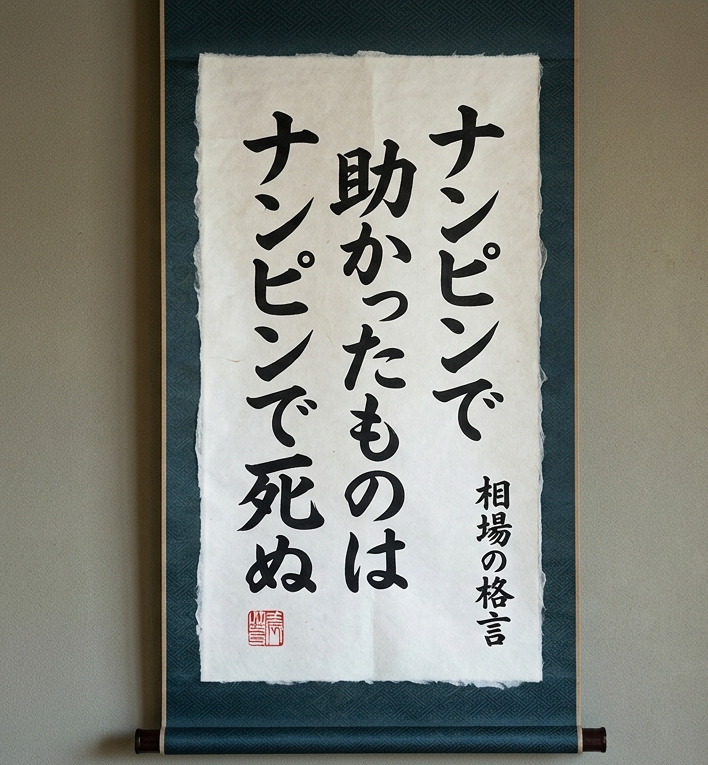 ナンピンで
助かったものは
ナンピンで死ぬ
相場の格言